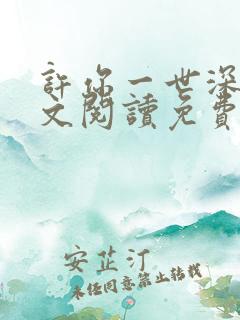 許你一世深
文閱讀免費
安芷汀
未經同意禁止轉載